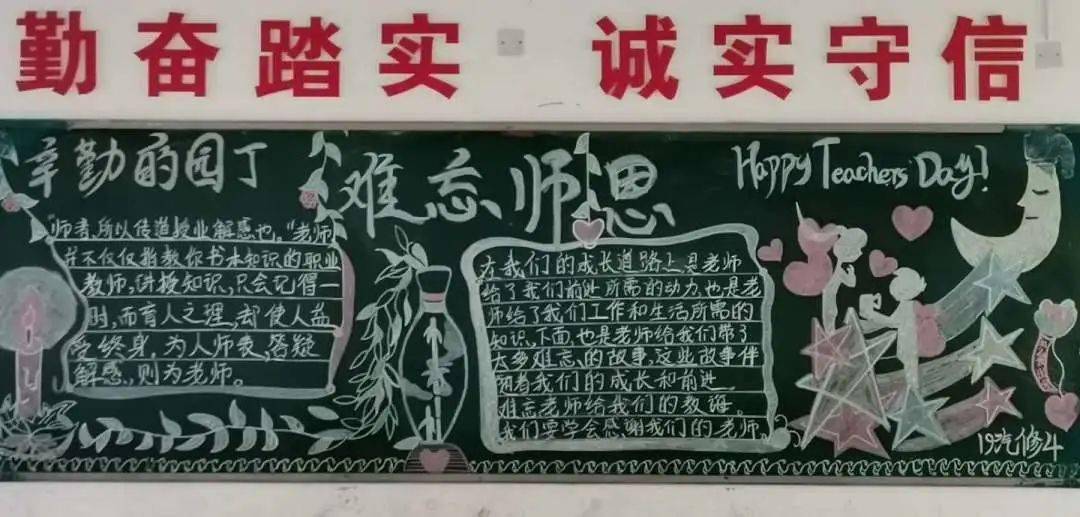 勤奋踏实 诚实守信
辛勤的园丁
"师者,所以传道授业解惑也。"老师
并不仅仅指教你书本知识的职业
教师,讲授知识,只会记得一
时,而育人之理,却使人益
受终身,为人师表,答疑
解惑,则为老师。
难忘师恩
在我们的成长道路上是老师
给了我们前进所需的动力,也是老
师给了我们工作和生活所需的
知识,下面也是老师给我们带了
太多难忘的故事,这些故事伴
随着我们的成长和前进。
难忘老师给我们的教诲。
我们要学会感谢我们的老师
Happy Teachers Day!
19汽修4